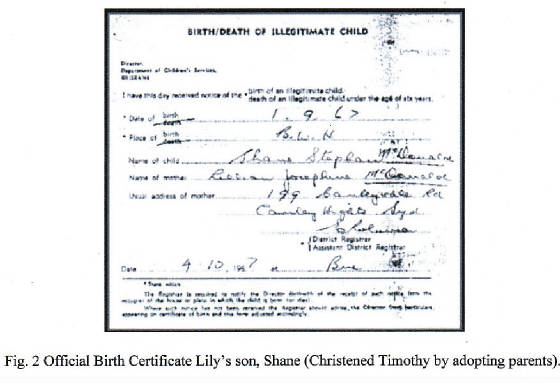 BIRTH/DEATH OF ILLEGITIMATE CHILD
Director,
Department of Children's Services,
BRISBANE
I have this day received notice of the * birth of an illegitimate child.
death of an illegitimate child under the age of six years.
* Date of birth 1. 9. 67
death
* Place of birth B.W.H
death
Name of child Shane Stephan McDonald
Name of mother Lillian Josephine McDonald
Usual address of mother 199 Rd
Heights Syd
* District Registrar
Assistant District Registrar
Date 4 10 1967 at Bne
* State which
The Registrar is required to notify the Director forthwith of the receipt of such notice from the
occupier of the house or place in which the child is born (or dies).
Where such notice has not been received the Registrar should advise the Director from particulars
appearing on certificate of birth and this form adjusted accordingly.
Fig. 2 Official Birth Certificate Lily's son, Shane (Christened Timothy by adopting parents).